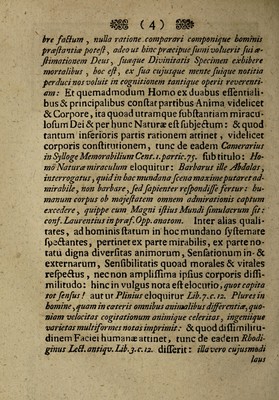 ( 4 )
bre factum, nulla ratione comparari componique hominis
præstantiæ potest, adeo ut hinc præcipue sumi voluerit sui æ-
stimationem Deus, suæque Divinitatis Specimen exhibere
mortalibus, hoc est, ex sua cujusque mente suique notitia
perduci nos voluit in cognitionem tantique operis reverenti-
am: Et quemadmodum Homo ex duabus essentiali-
bus & principalibus constat partibus Anima videlicet
& Corpore, ita quod utramque substantiam miracu-
losum Dei & per hunc Naturæ est subjectum: & quod
tantum inferioris partis rationem attinet, videlicet
corporis constitutionem, tunc de eadem Camerarius
in Sylloge Memorabilium Cent. 1. partic. 75. sub titulo: Ho-
mo Naturæ miraculum eloquitur: Barbarus ille Abdalas,
interrogatus, quid in hac mundana scena maxime putaret ad-
mirabile, non barbare, sed sapienter respondisse fertur: hu-
manum corpus ob majestatem omnem admirationis captum
excedere, quippe cum Magni istius Mundi simulacrum sit:
conf. Laurentius in præf. Opp. anatom. Inter alias quali-
tates, ad hominis statum in hoc mundano systemate
spectantes, pertinet ex parte mirabilis, ex parte no-
tatu digna diversitas animorum, Sensationum in- &
externarum, Sensibilitatis quoad morales & vitales
respectus, nec non amplissima ipsius corporis dissi-
militudo: hinc in vulgus nota est elocutio, quot capita
tot sensus! aut ut Plinius eloquitur Lib. 7. c. 12. Plures in
homine, quam in cæteris omnibus animalibus differentiæ, quo-
niam velocitas cogitationum animique celeritas, ingeniique
varietas multiformes notas imprimit: & quod dissimilitu-
dinem Faciei humanæ attinet, tunc de eadem Rhodi-
ginus Lect. antiqv. Lib. 3. c. 12. disserit: illa vero cujusmodi
laus